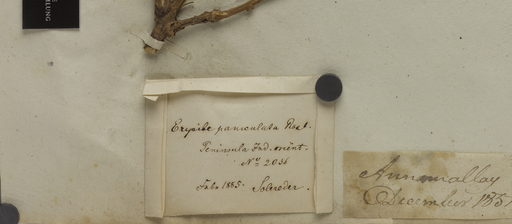 LLUNG
Erycibe paniculata Roxb.
Peninsula Ind. orient.
No 2036
Febr. 1885. Solereder.
Annamallay
December 185